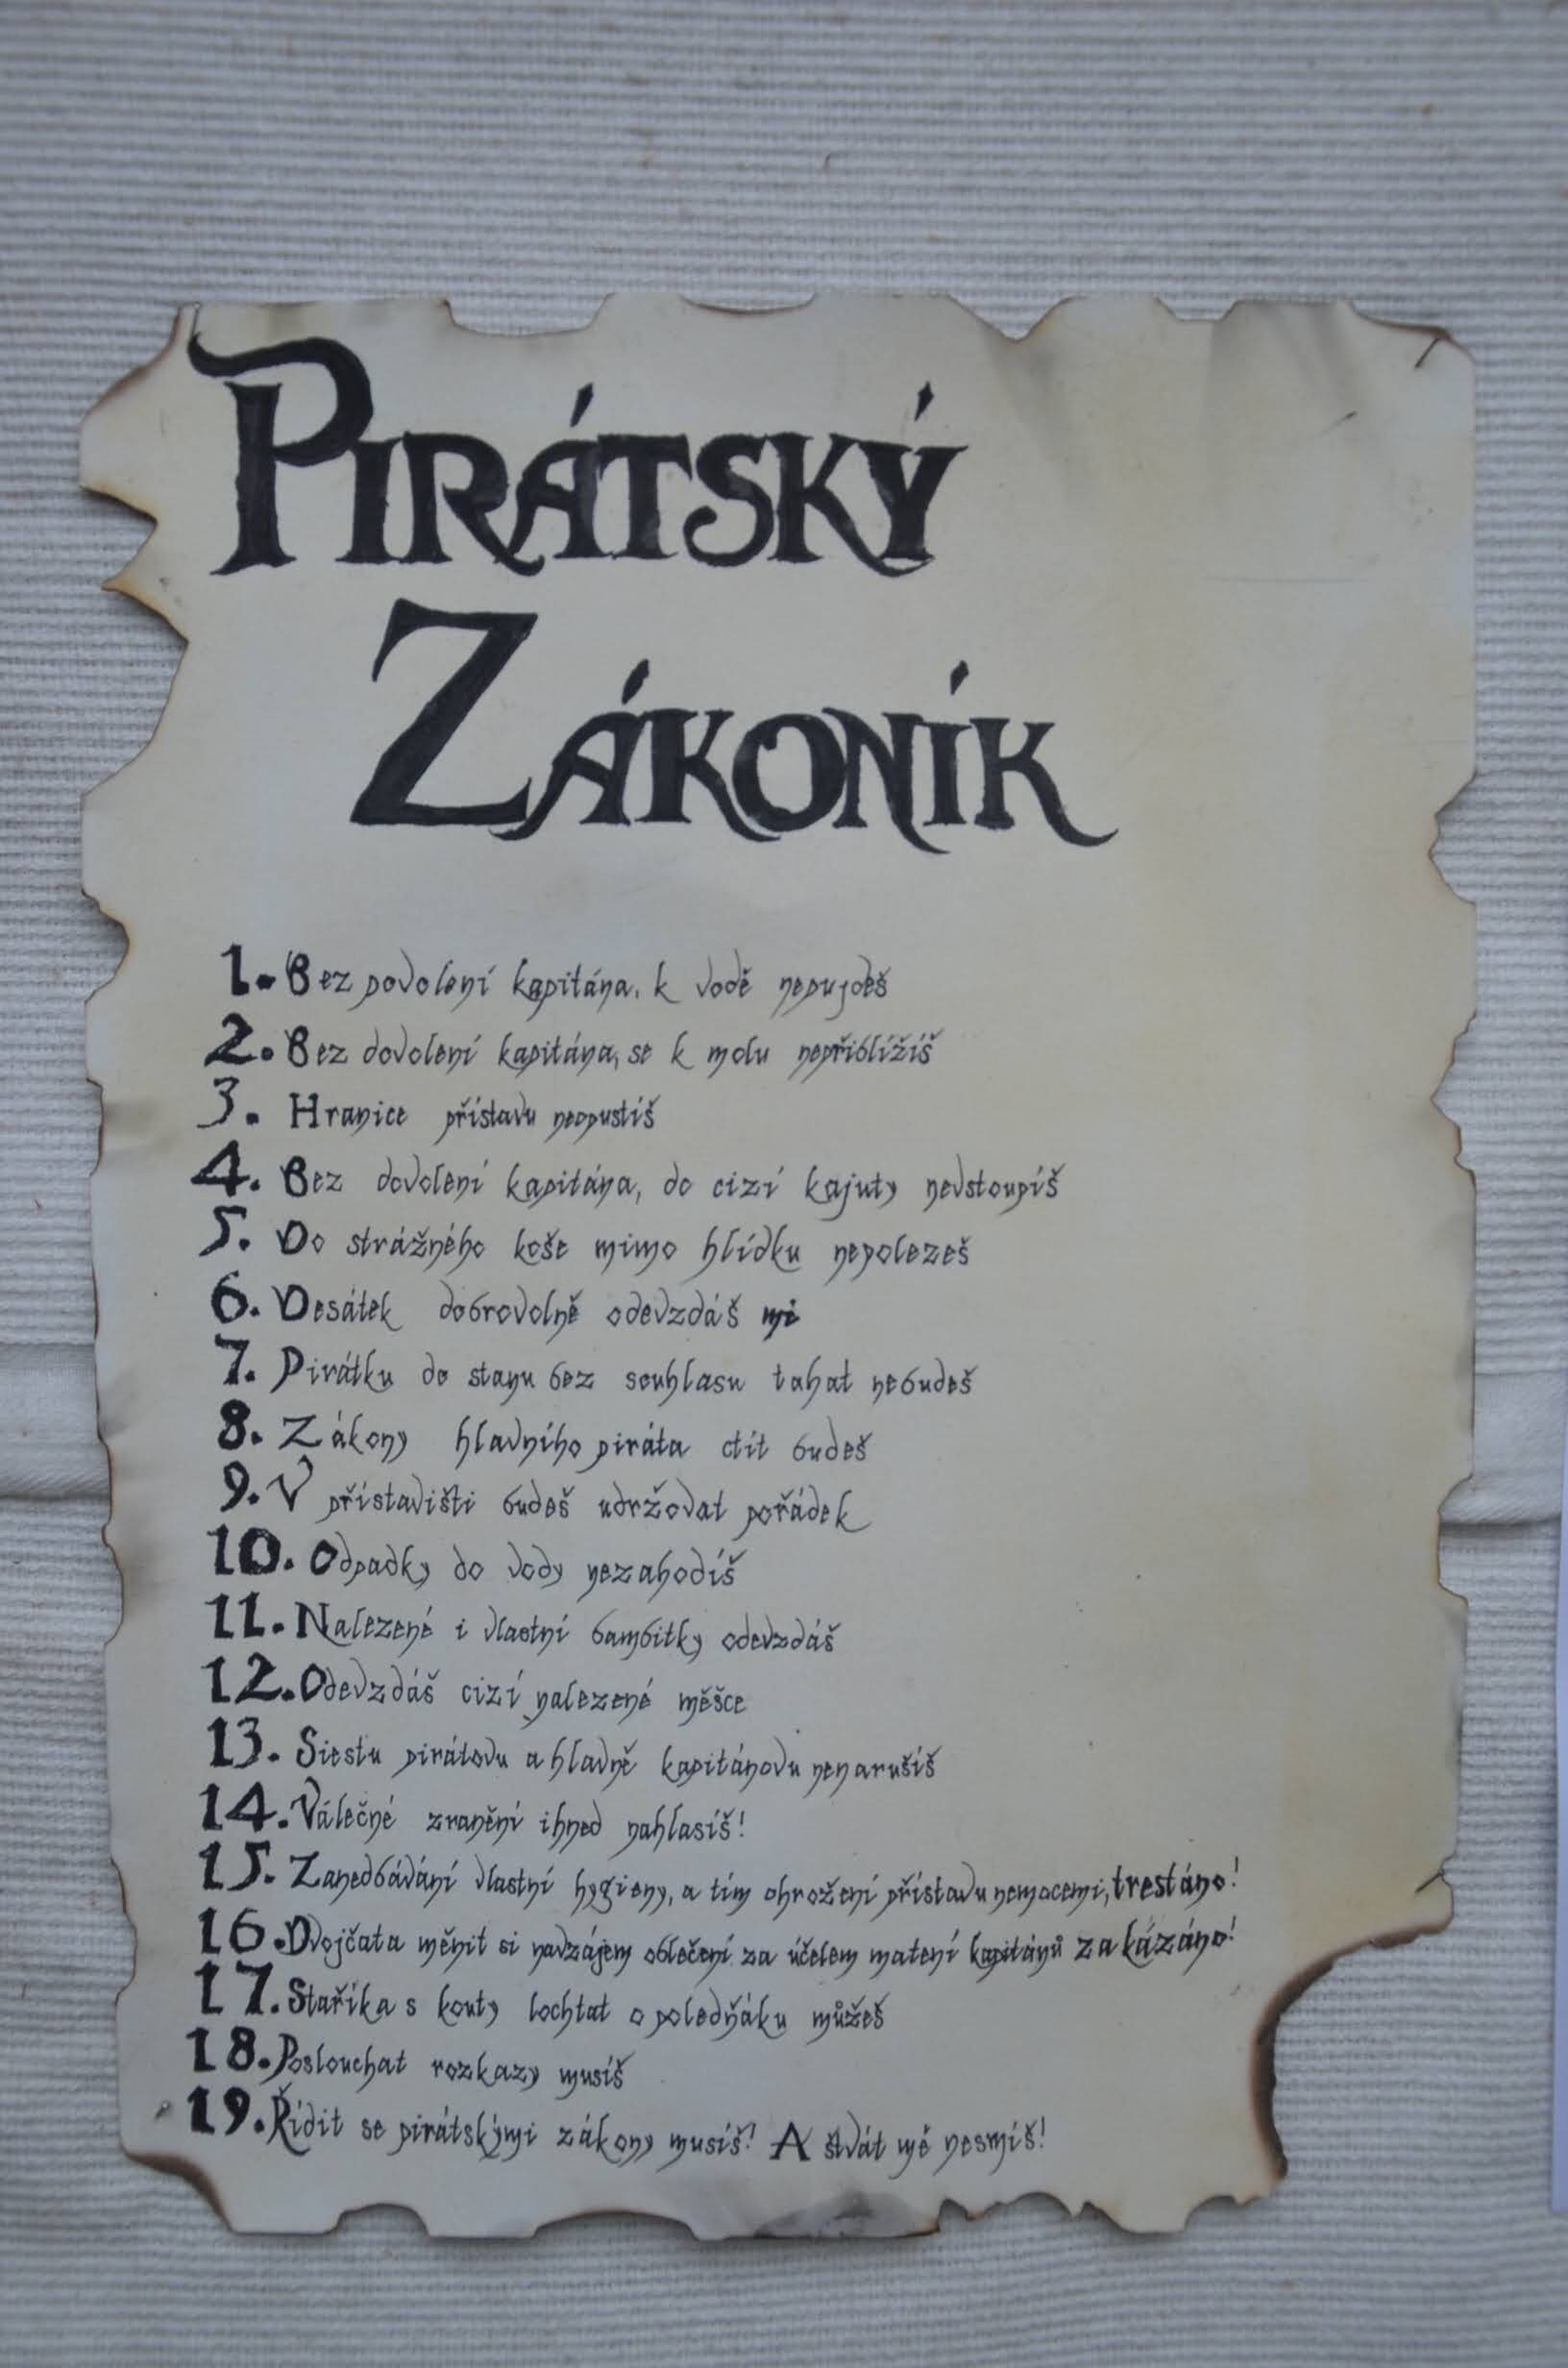 PIRÁTSKÝ
ZÁKONÍK
1. Bez povolení kapitána, k vodě nepujdeš
2. Bez dovolení kapitána, se k molu nepřiblížíš
3. Hranice přístavu neopustíš
4. Bez dovolení kapitána, do cizí kajuty nevstoupíš
5. Do strážného koše mimo hlídku nepolezeš
6. Desátek dobrovolně odevzdáš mi
7. Pirátku do stanu bez souhlasu tahat nebudeš
8. Zákony hlavního piráta ctít budeš
9. V přístavišti budeš udržovat pořádek
10. Odpadky do vody nezahodíš
11. Nalezené i vlastní bambitky odevzdáš
12. Odevzdáš cizí nalezené měšce
13. Siestu pirátovu a hlavně kapitánovu nenarušíš
14. Válečné zranění ihned nahlasíš!
15. Zanedbávání vlastní hygieny, a tím ohrožení přístavu nemocemi, trestáno!
16. Dvojčata měnit si navzájem oblečení za účelem matení kapitánů zakázáno!
17. Staříka s kouty lochtat o poledňáku můžeš
18. Poslouchat rozkazy musíš
19. Řídit se pirátskými zákony musíš! A štvát mě nesmíš!